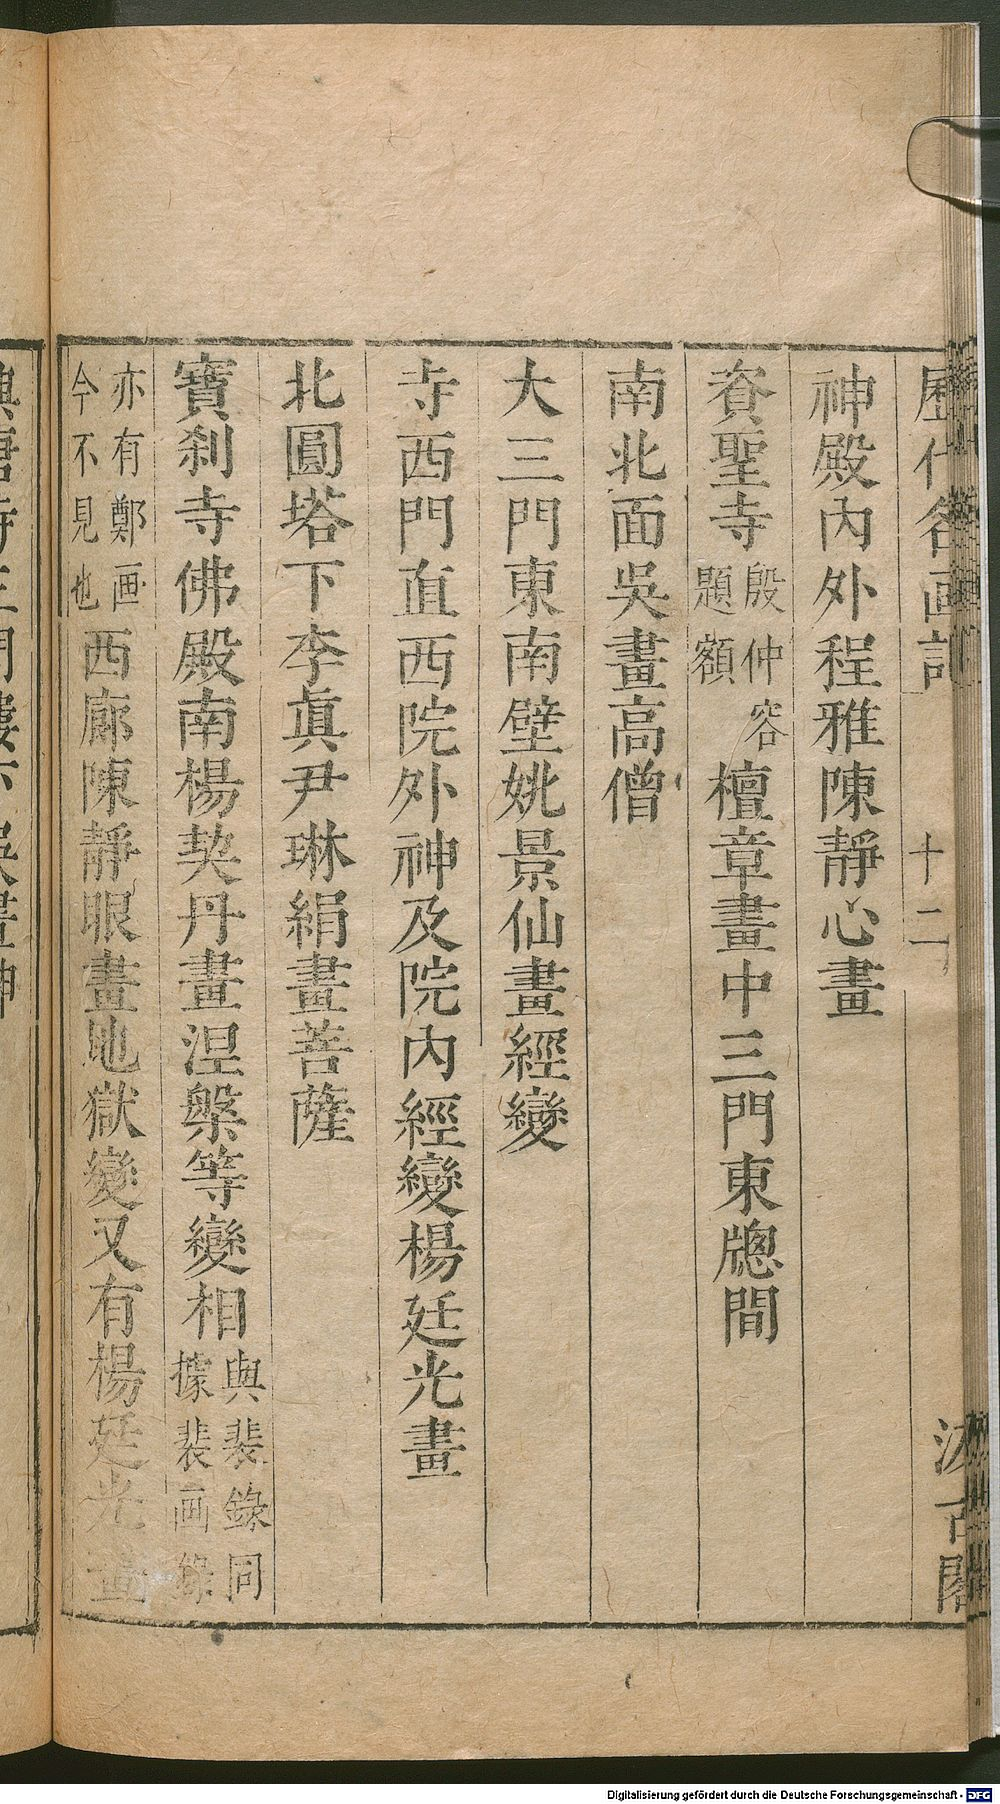 歷代名画記 十二 汲古閣
神殿內外程雅陳靜心畫
資聖寺殷仲容題額檀章畫中三門東牕間
南北面吳畫高僧
大三門東南壁姚景仙畫經變
寺西門直西院外神及院內經變楊廷光畫
北圓塔下李真尹琳絹畫菩薩
寶刹寺佛殿南楊契丹畫涅槃等變相與裴錄同據裴画錄
亦有鄭画今不見也西廊陳靜眼畫地獄變又有楊廷光畫
Digitalisierung gefördert durch die Deutsche Forschungsgemeinschaft - DFG